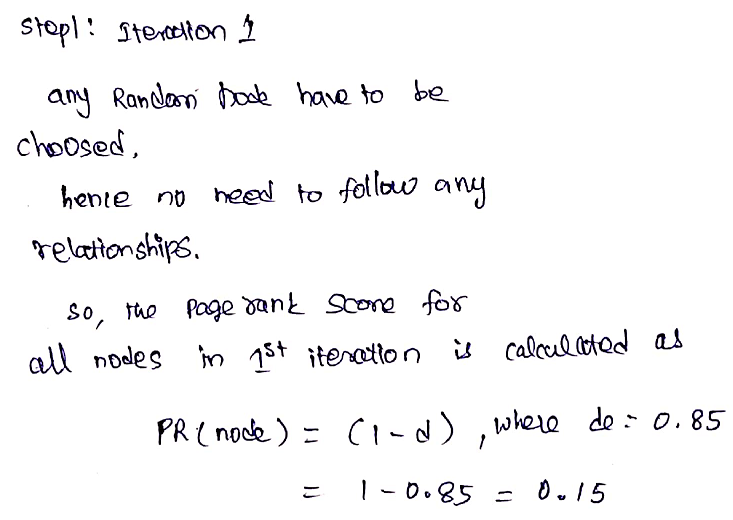 Step1: Iteration 1
any Random node have to be
choosed,
hence no need to follow any
relationships.
so, the page rank score for
all nodes in 1st iteration is calculated as
PR(node) = (1-d), where de = 0.85
= 1-0.85 = 0.15